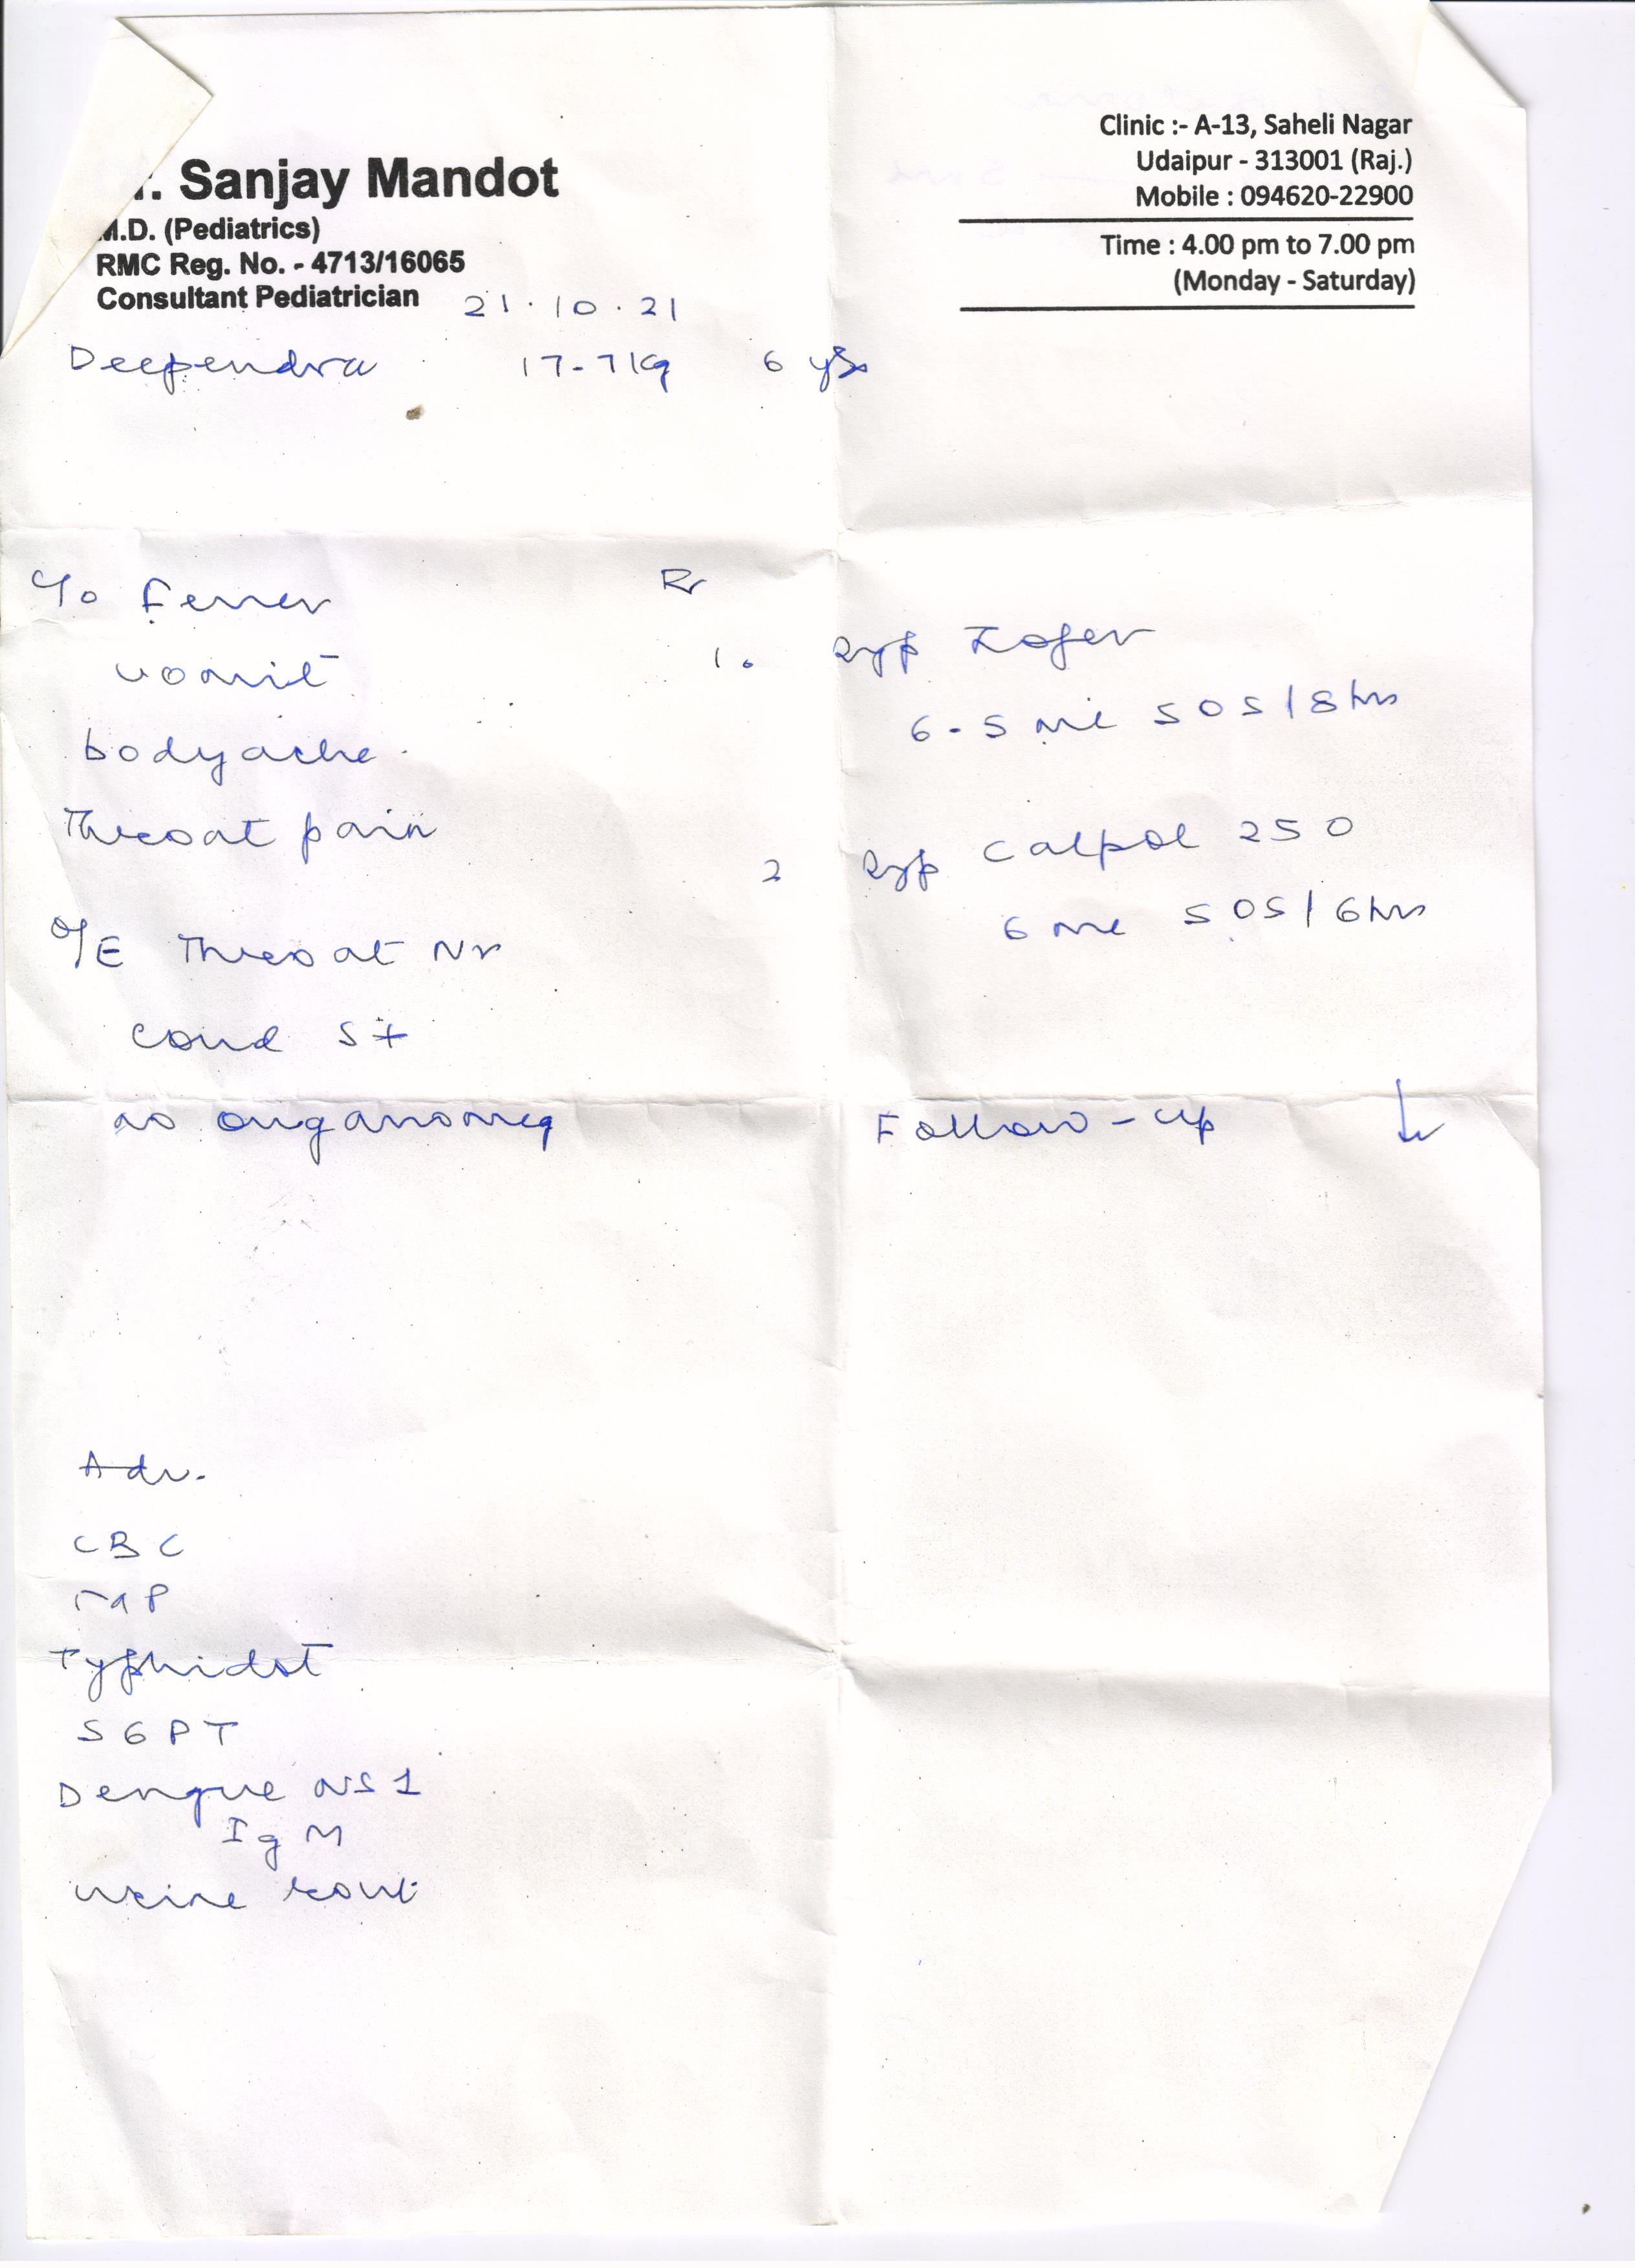 Sanjay Mandot
M.D. (Pediatrics)
RMC Reg. No. - 4713/16065
Consultant Pediatrician
Clinic :- A-13, Saheli Nagar
Udaipur - 313001 (Raj.)
Mobile : 094620-22900
Time : 4.00 pm to 7.00 pm
(Monday - Saturday)
21.10.21
Deependra 17.7 kg 6 yrs
C/o Fever
vomit
bodyache
Throat pain
O/E Throat Nr
Cond S+
no organomeg
Rx
1. Syp Zofer
6.5 ml SOS/8hrs
2 Syp Calpol 250
6 ml SOS/6hrs
Follow-up
Adv.
CBC
Typhidot
SGPT
Dengue NS1
IgM
urine rout